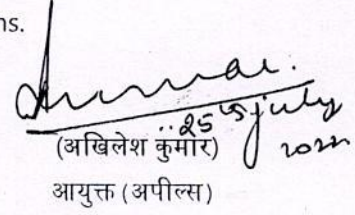 ns.
25 July
2022
(अखिलेश कुमार)
आयुक्त (अपील्स)